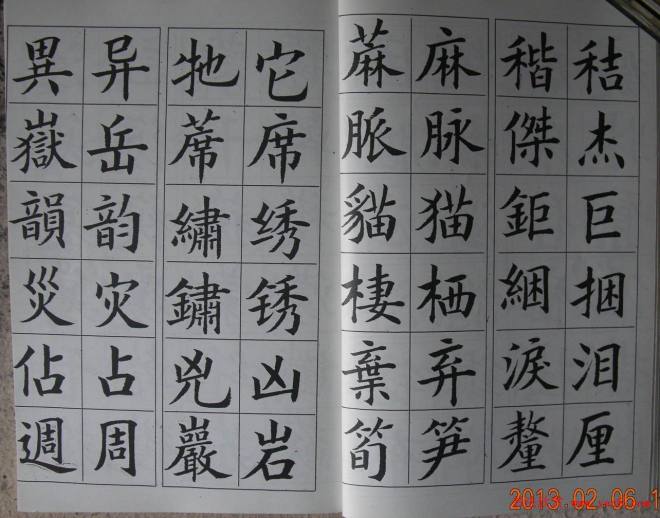 異 异 牠 它 蔴 麻 稭 秸
嶽 岳 蓆 席 脈 脉 傑 杰
韻 韵 繡 绣 貓 猫 鉅 巨
災 灾 鏽 锈 棲 栖 綑 捆
佔 占 兇 凶 棄 弃 淚 泪
週 周 巖 岩 筍 笋 釐 厘
2013.02.06